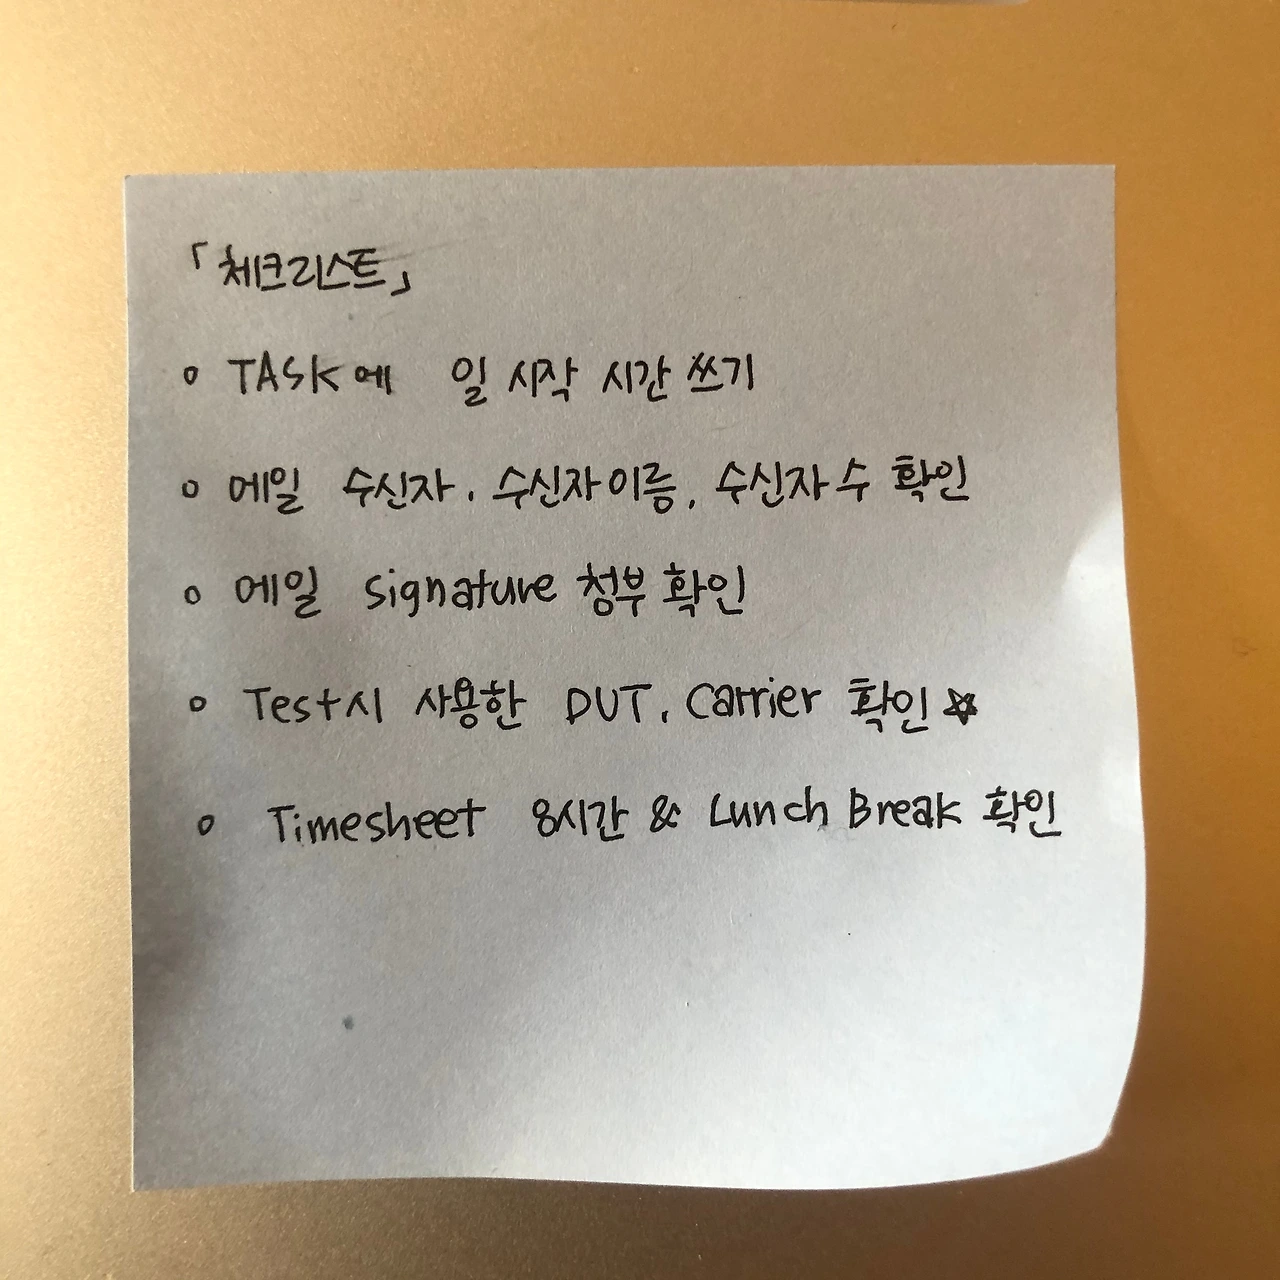 「체크리스트」
○ TASK에 일 시작 시간 쓰기
○ 메일 수신자, 수신자이름, 수신자 수 확인
○ 메일 signature 첨부 확인
○ Test시 사용한 DUT, Carrier 확인 ☆
○ Timesheet 8시간 & Lunch Break 확인